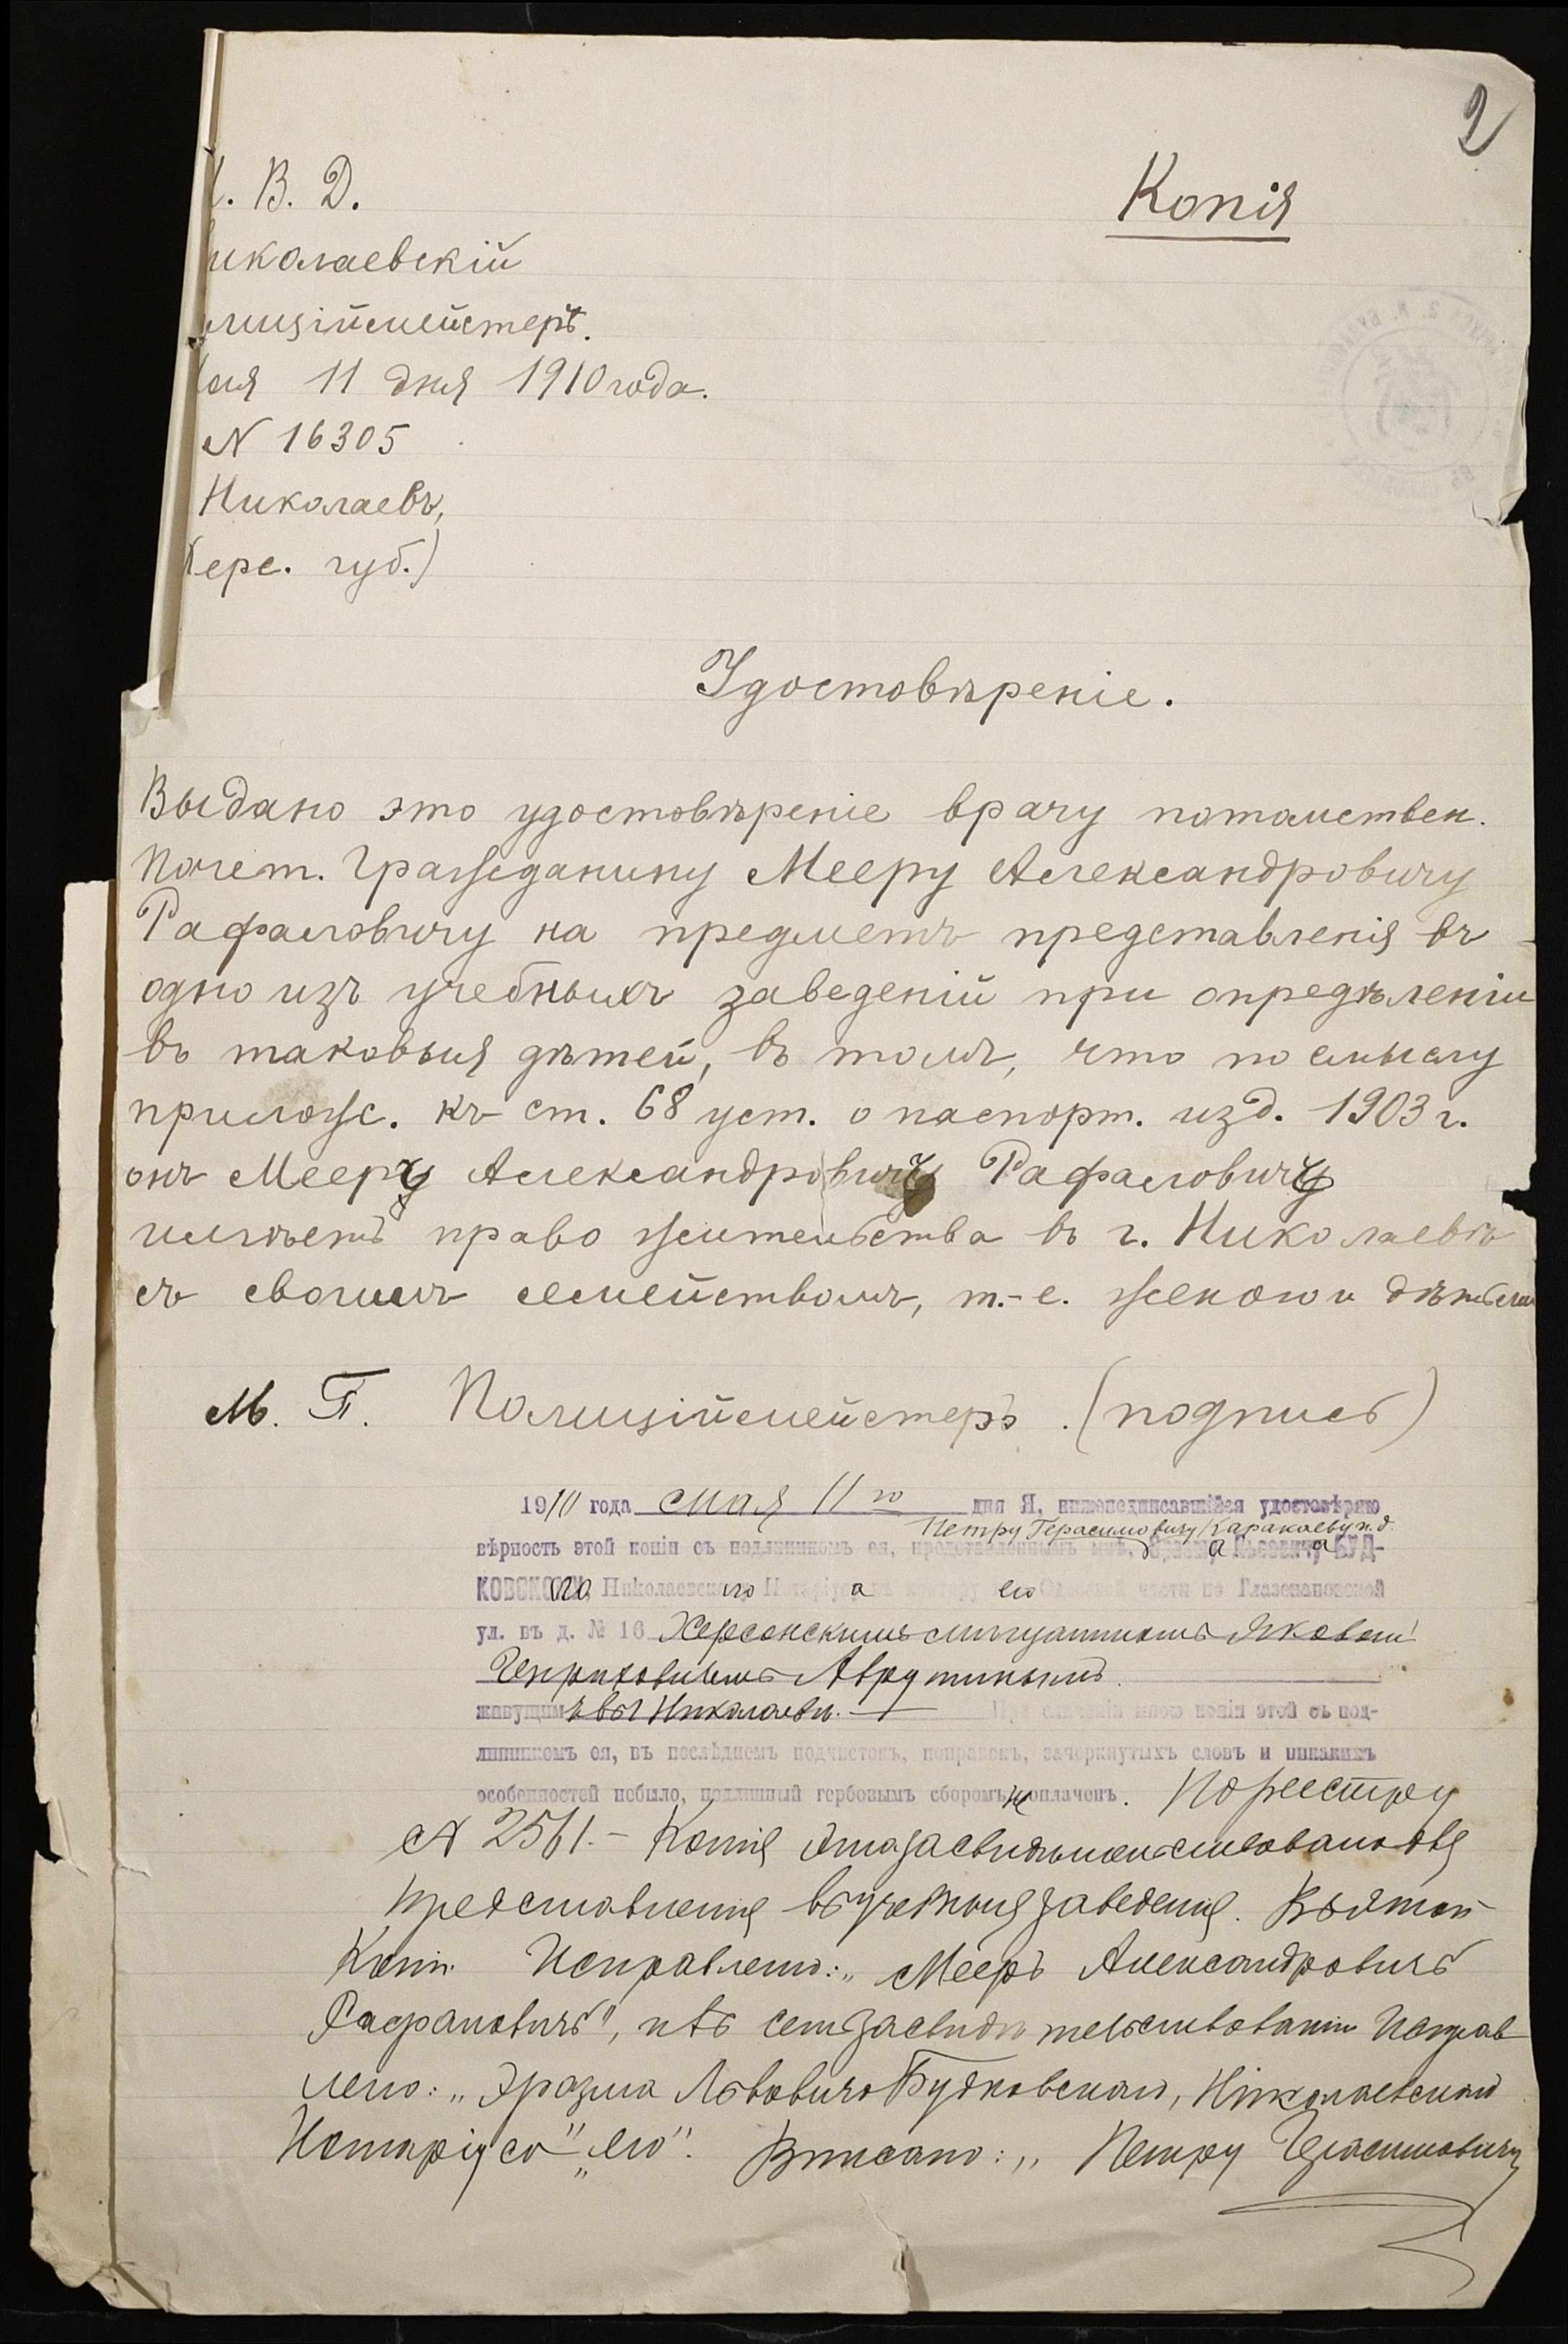 2
Копія
. В. Д.
иколаевскій
лиційместеръ.
ая 11 дня 1910 года.
N 16305
Николаевъ,
Херс. губ.)
Удостовѣреніе.
Выдано это удостовѣреніе врачу потомствен.
Почет. Гражданину Мееру Александровичу
Рафаловичу на предметъ представленія въ
одно изъ учебныхъ заведеній при опредѣленіи
въ таковыя дѣтей, въ томъ, что по смыслу
прилож. къ ст. 68 уст. о паспорт. изд. 1903 г.
онъ Мееръ Александровичъ Рафаловичъ
имѣетъ право жительства въ г. Николаевѣ
съ своимъ семействомъ, т.-е. женою и дѣтьми
М. П. Полиціймейстеръ. (подпись)
1910 года мая 11 го дня Я, нижеподписавшійся удостовѣряю
Петру Герасимовичу Каракаеву и. д.
вѣрность этой копіи съ подлинникомъ ея, представленнымъ мнѣ, Эразма Львовича БУД-
КОВСКОго, Николаевского Нотаріуса въ контору его части по Глазенаповской
ул. въ д. № 16 Херсонскимъ мѣщаниномъ Яковомъ
Генриховичемъ Аврутинымъ
живущимъ въ г. Николаевѣ. При сличеніи мною копіи этой съ под-
линникомъ ея, въ послѣднемъ подчистокъ, поправокъ, зачеркнутыхъ словъ и никакихъ
особенностей небыло, подлинный гербовымъ сборомъ не оплаченъ. По реестру
N 2561. – Копія эта засвидѣтельствована для
представленія въ учебныя заведенія. Въ этой
Копіи Исправлено: „Мееръ Александровичъ
Рафаловичъ", и въ семъ засвидѣтельствованіи Исправ
лено: „Эразма Львовича Будковскаго, Николаевскаго
Нотаріуса" „его". Вписано: „Петру Герасимовичу